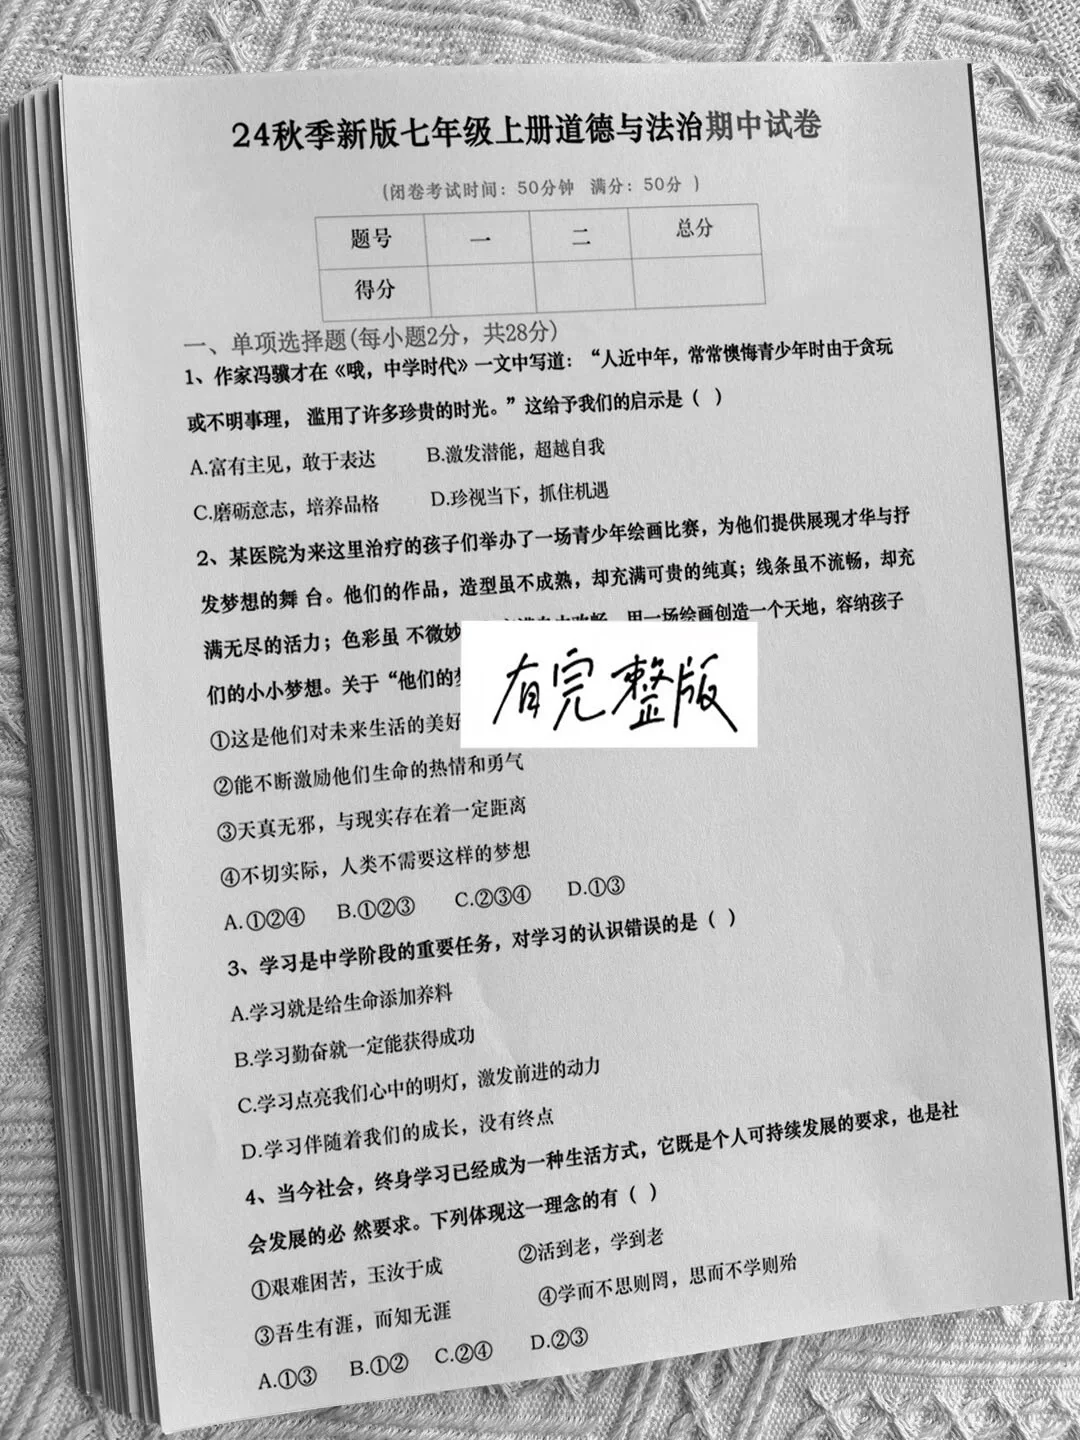 24秋季新版七年级上册道德与法治期中试卷
(闭卷考试时间：50分钟 满分：50分 )
题号 一 二 总分
得分
一、单项选择题(每小题2分，共28分)
1、作家冯骥才在《哦，中学时代》一文中写道：“人近中年，常常懊悔青少年时由于贪玩
或不明事理， 滥用了许多珍贵的时光。”这给予我们的启示是（ ）
A.富有主见，敢于表达 B.激发潜能，超越自我
C.磨砺意志，培养品格 D.珍视当下，抓住机遇
2、某医院为来这里治疗的孩子们举办了一场青少年绘画比赛，为他们提供展现才华与抒
发梦想的舞 台。他们的作品，造型虽不成熟，却充满可贵的纯真；线条虽不流畅，却充
满无尽的活力；色彩虽 不微妙 用一场绘画创造一个天地，容纳孩子
们的小小梦想。关于“他们的梦
有完整版
①这是他们对未来生活的美好
②能不断激励他们生命的热情和勇气
③天真无邪，与现实存在着一定距离
④不切实际，人类不需要这样的梦想
A.①②④ B.①②③ C.②③④ D.①③
3、学习是中学阶段的重要任务，对学习的认识错误的是（ ）
A.学习就是给生命添加养料
B.学习勤奋就一定能获得成功
C.学习点亮我们心中的明灯，激发前进的动力
D.学习伴随着我们的成长，没有终点
4、当今社会，终身学习已经成为一种生活方式，它既是个人可持续发展的要求，也是社
会发展的必 然要求。下列体现这一理念的有（ ）
①艰难困苦，玉汝于成 ②活到老，学到老
③吾生有涯，而知无涯 ④学而不思则罔，思而不学则殆
A.①③ B.①② C.②④ D.②③